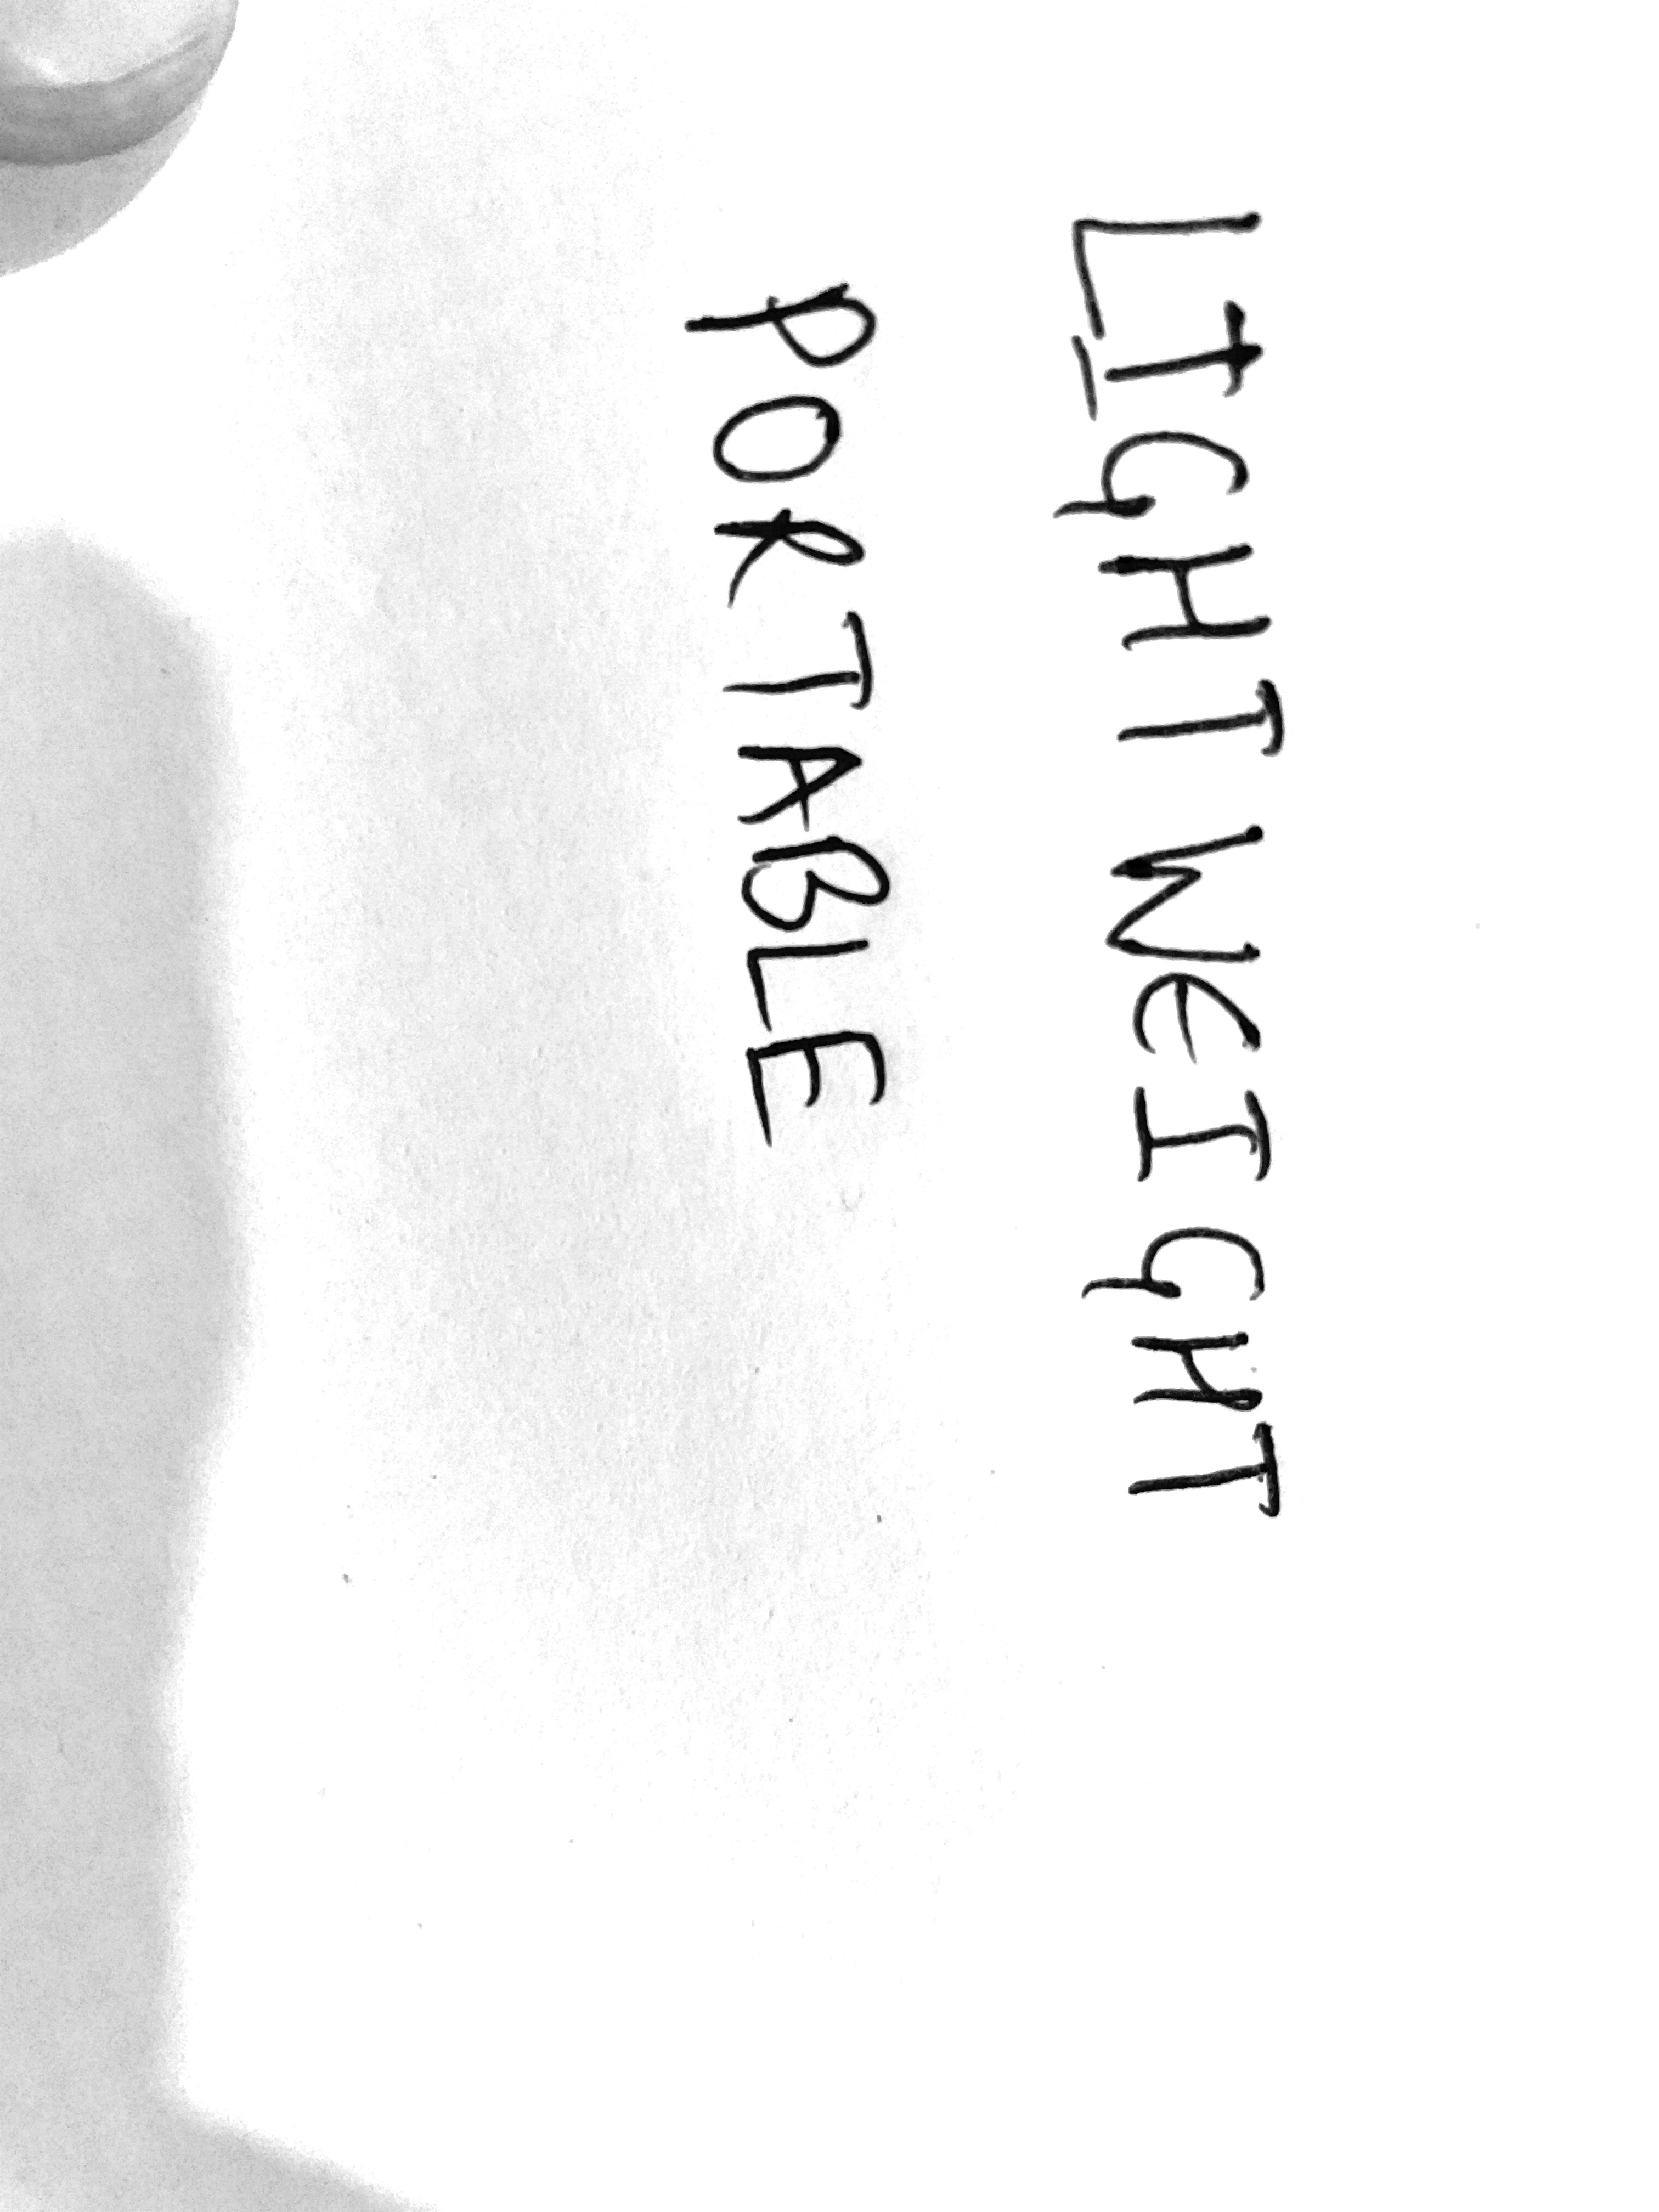 LIGHT WEIGHT
PORTABLE